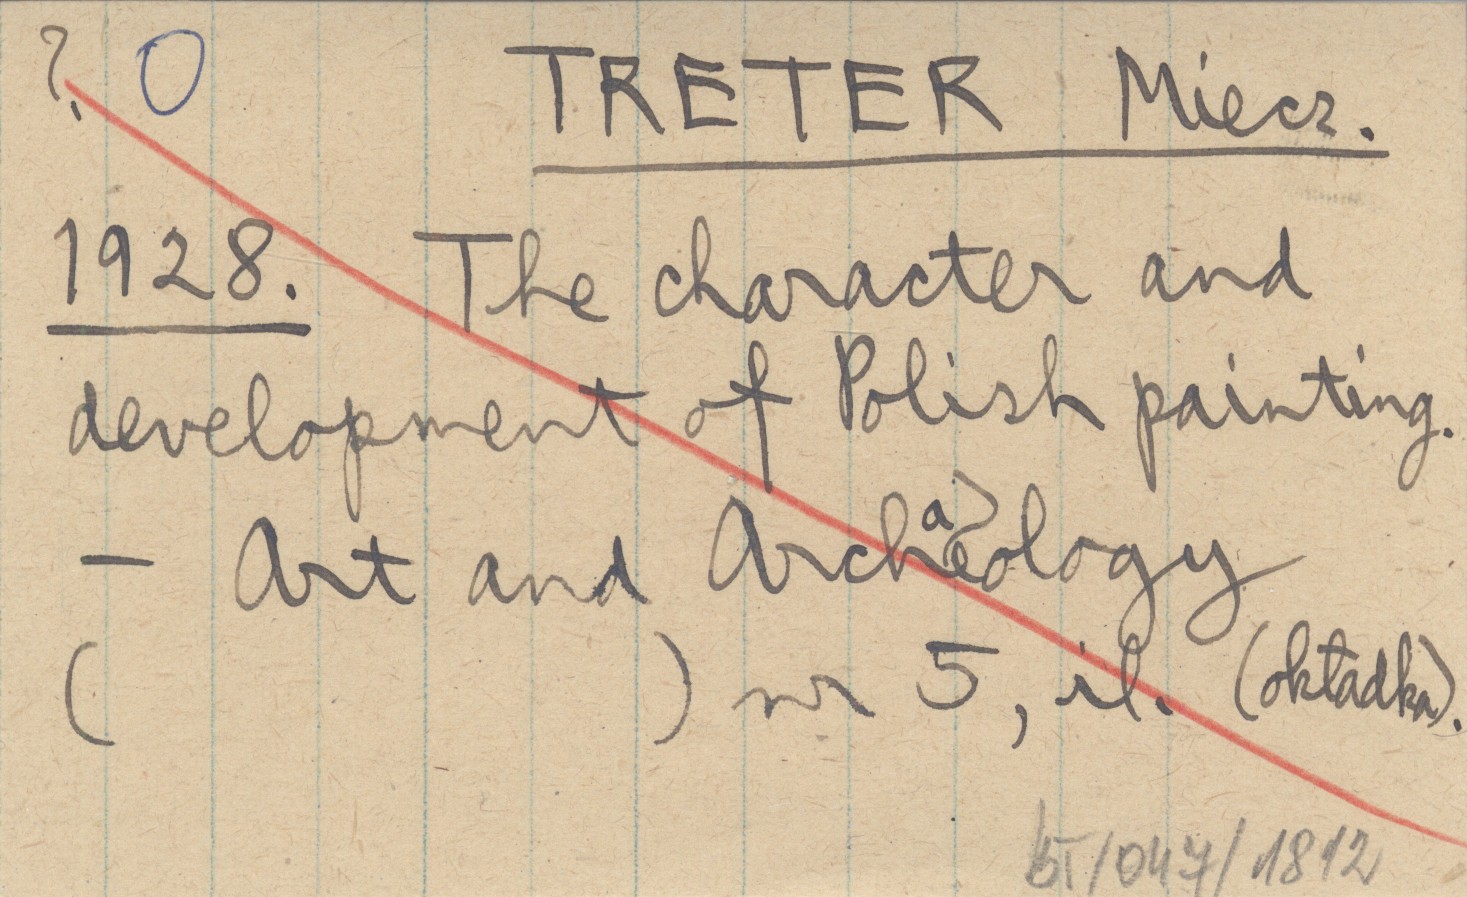 ?. O TRETER Miecz.
1928. The character and
development of Polish painting.
– Art and Archaeology
( ) nr 5, il. (okładka).
bT/047/1812